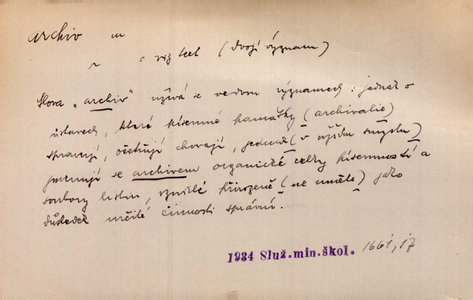 archiv m
viz text (dvojí význam)
Slova "archiv" užívá se ve dvou významech: jednak o
ústavech, které písemné památky (archivalie)
spravují, chovají, jednak (v užším smyslu)
jmenují se archivem organické celky písemností a
soubory listin, vzniklé přirozeně (ne uměle) jako
důsledek určité činnosti správní.
1934 Služ.min.škol. 1661, 17